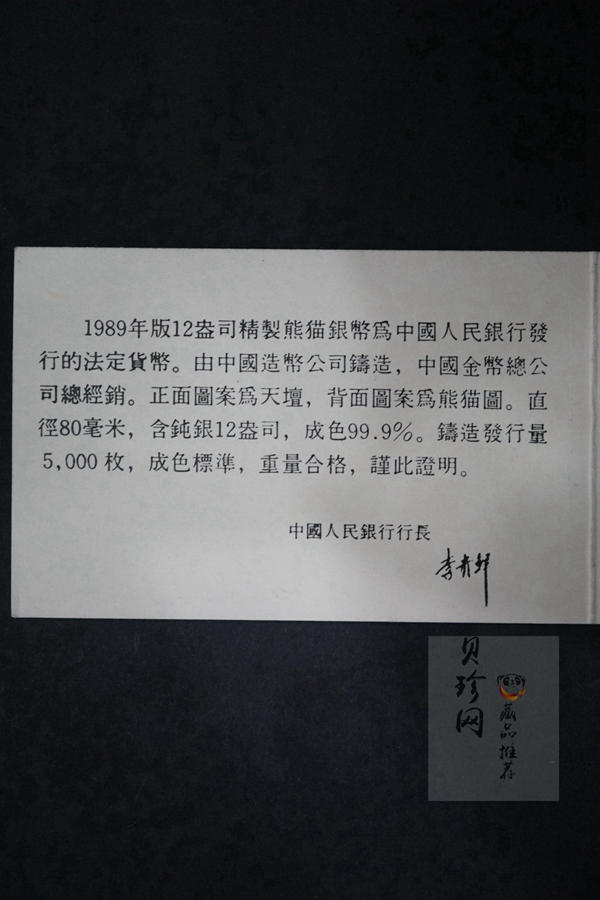 1989年版12盎司精製熊猫銀幣爲中國人民銀行發
行的法定貨幣。由中國造幣公司鑄造，中國金幣總公
司總經銷。正面圖案爲天壇，背面圖案爲熊猫圖。直
徑80毫米，含鈍銀12盎司，成色99.9%。鑄造發行量
5,000枚，成色標準，重量合格，謹此證明。
中國人民銀行行長
李貴鮮
贝珍网
藏品推荐